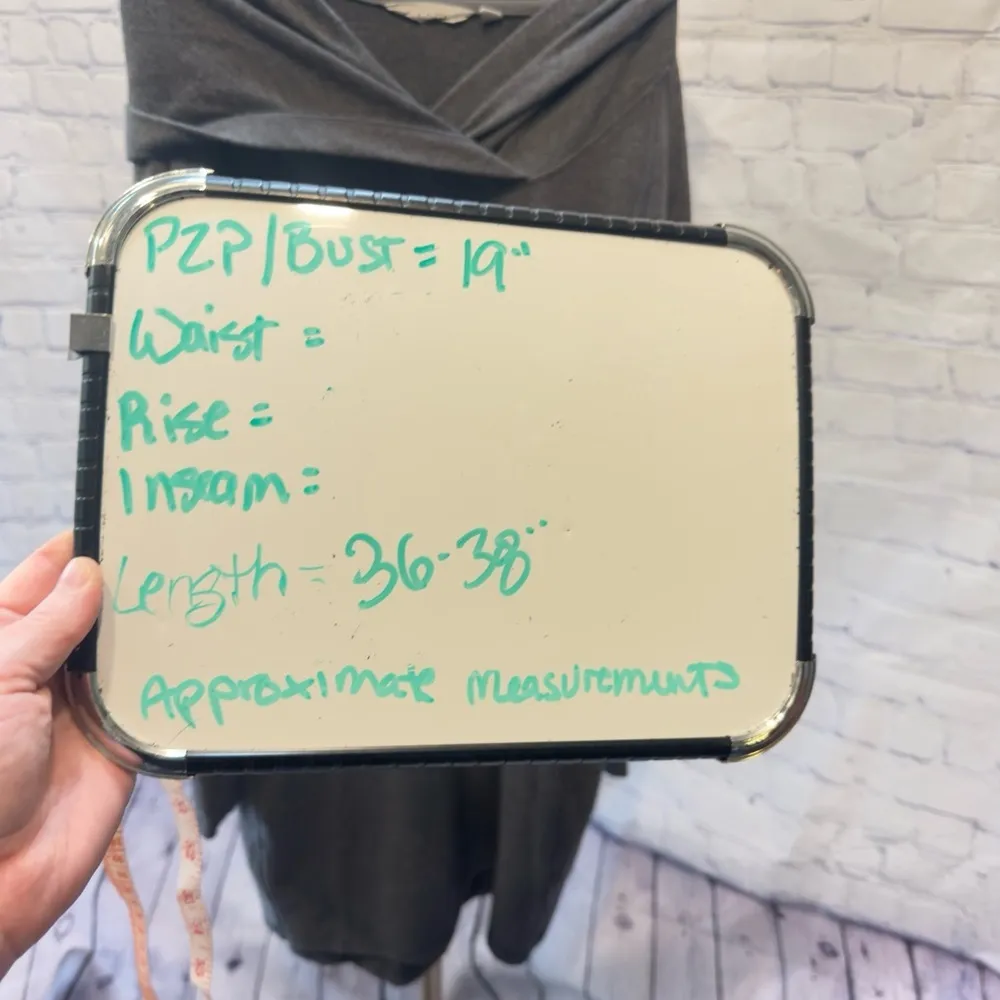 P2P/Bust = 19"
Waist =
Rise =
Inseam =
Length = 36-38"
Approximate Measurements